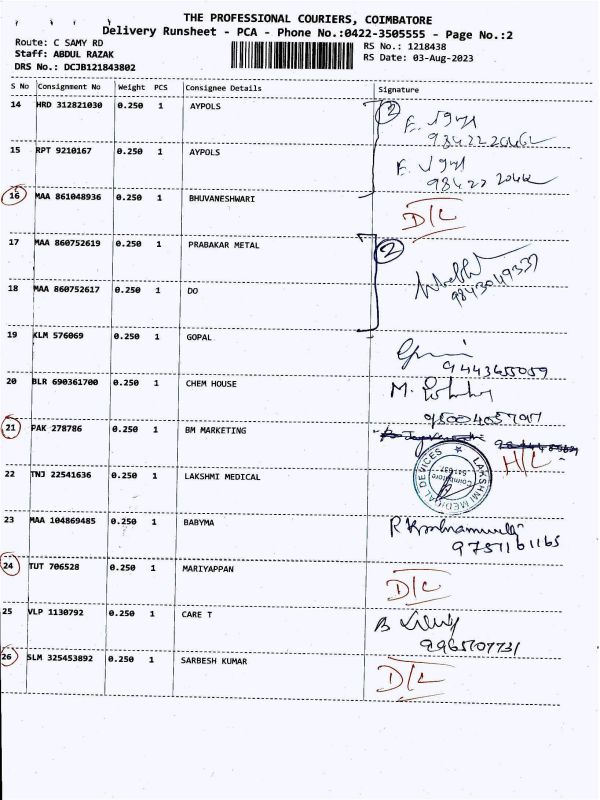 THE PROFESSIONAL COURIERS, COIMBATORE
Delivery Runsheet - PCA - Phone No.:0422-3505555 - Page No.:2
Route: C SAMY RD
Staff: ABDUL RAZAK
DRS No.: DCJB121843802
RS No.: 1218438
RS Date: 03-Aug-2023
S No Consignment No Weight PCS Consignee Details Signature
14 HRD 312821030 0.250 1 AYPOLS 2
15 RPT 9210167 0.250 1 AYPOLS
16 MAA 861048936 0.250 1 BHUVANESHWARI D/L
17 MAA 860752619 0.250 1 PRABAKAR METAL 2
18 MAA 860752617 0.250 1 DO 9843049339
19 KLM 576069 0.250 1 GOPAL 9443655059
20 BLR 690361700 0.250 1 CHEM HOUSE M.
21 PAK 278786 0.250 1 BM MARKETING H/L
22 TNJ 22541636 0.250 1 LAKSHMI MEDICAL LAKSHMI MEDICAL DEVICES Coimbatore
23 MAA 104869485 0.250 1 BABYMA 9751161165
24 TUT 706528 0.250 1 MARIYAPPAN D/L
25 VLP 1130792 0.250 1 CARE T B 9965707731
26 SLM 325453892 0.250 1 SARBESH KUMAR D/L